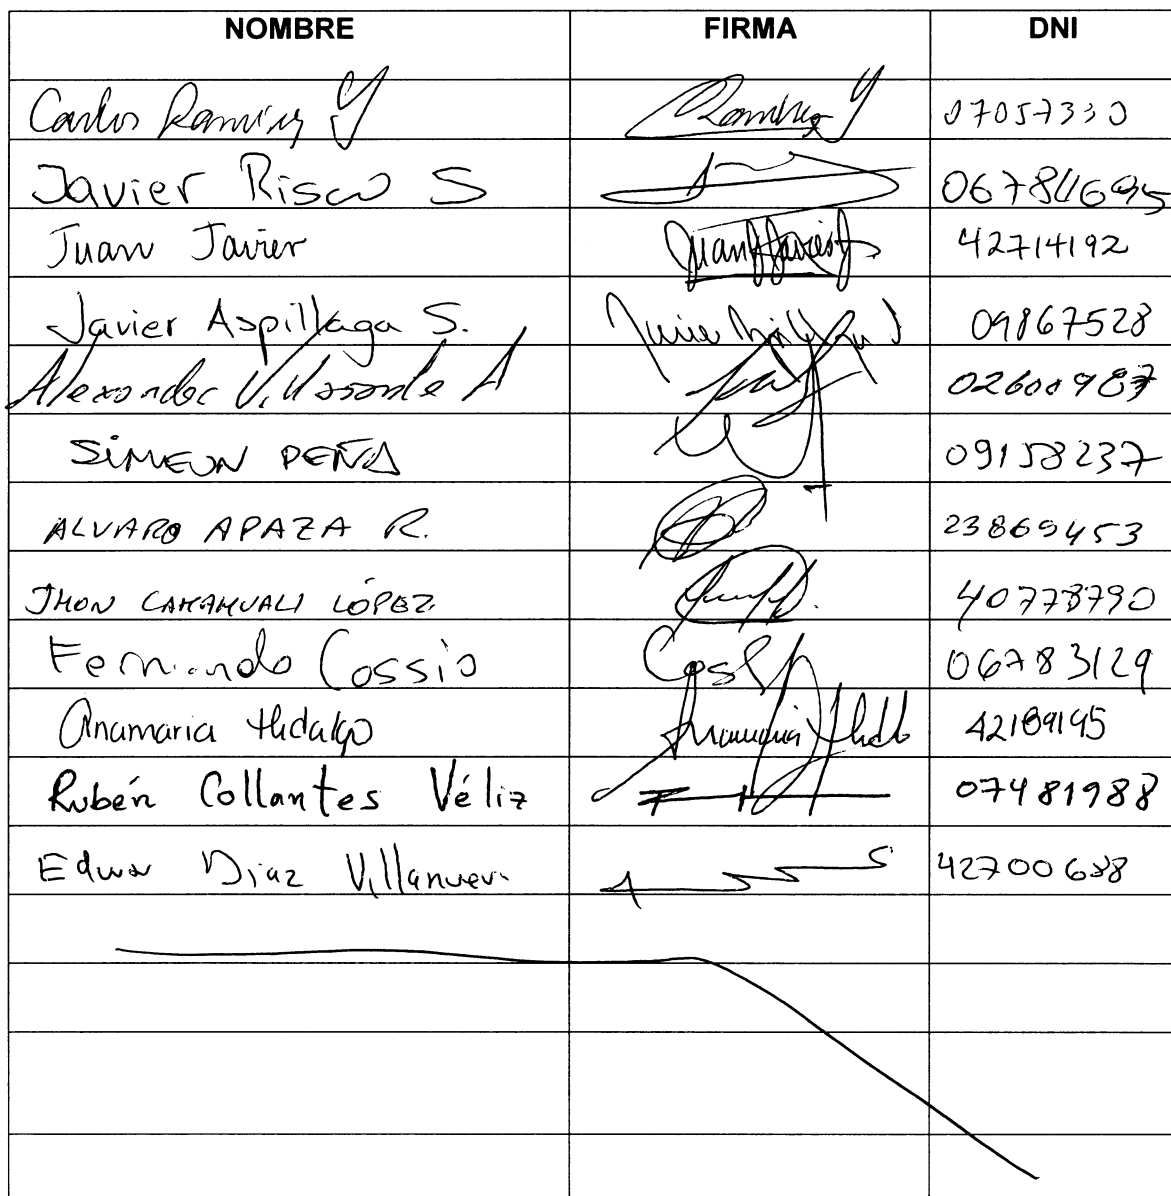 NOMBRE FIRMA DNI
Carlos Ramírez Y Ramírez Y 07057330
Javier Risco S
Juan Javier Juan Javier 42714192
Javier Aspillaga S. 09867528
Alexander Villasante A
SIMEON PEÑA 09158237
ALVARO APAZA R. 23869453
JHON CAMAHUALI LÓPEZ. 40778790
Fernando Cossio Coss 06783129
Anamaria Hidalgo 42189195
Rubén Collantes Véliz 07481988
Edwar Diaz Villanueva 42700688